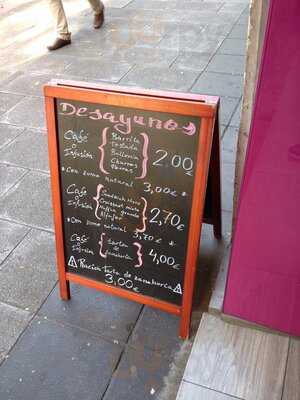 Desayunos
Café
o
Infusión
Barrita
Tostada
Bollería
Churros
Porras
2,00
*Con zumo natural 3,00€*
Café
o
Infusión
Sandwich Mixto
Croissant mixto
grande
Alfajor
2,70
*Con zumo natural 3,70€*
Café
o
Infusión
tarta de
zanahoria
4,00€
Ración tarta de zanahoria
3,00€